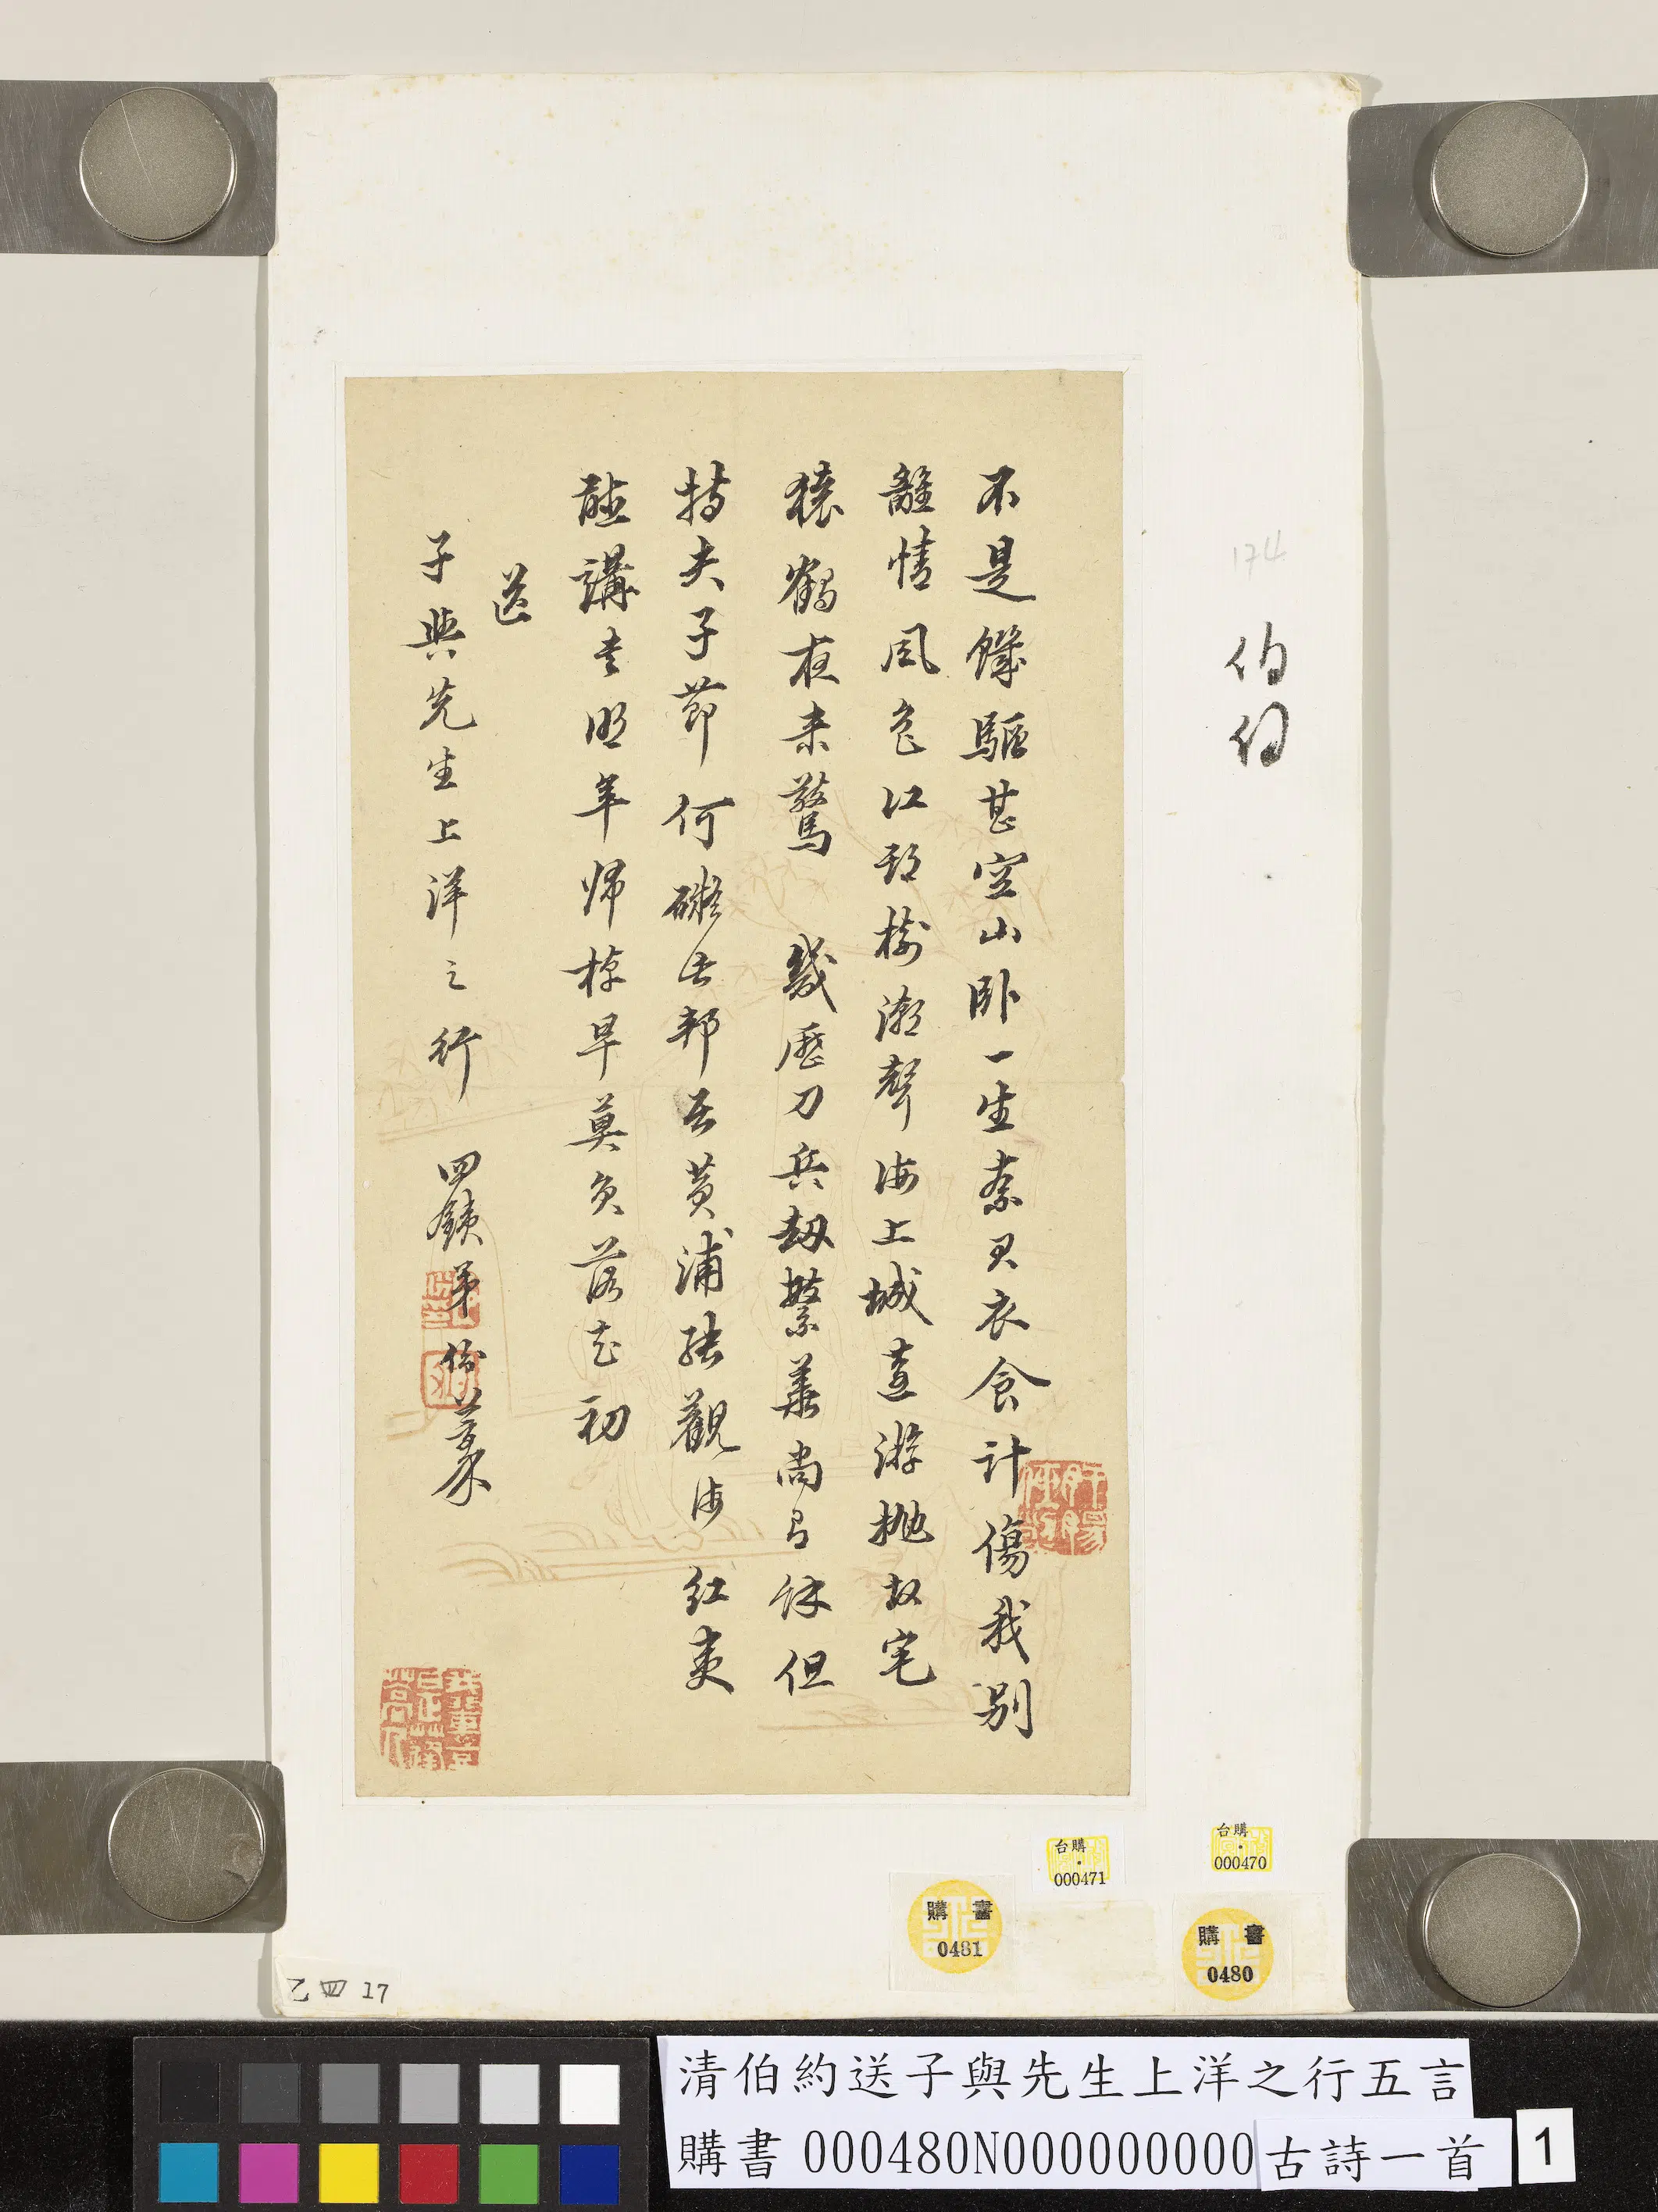 不是饑驅甚空山卧一生奈君衣食計傷我別
離情風色江邨樹潮聲海上城遠游拋故宅
猿鶴夜來驚 幾歷刀兵劫繁華尚有餘但
持夫子節何礙居邦去黃浦聊觀海紅夷
聽講書明年歸棹早莫負落花初
送
子與先生上洋之行 四鏡弟 稿
174
伯約
台購
000471
台購
000470
購書
0481
購書
0480
乙四 17
清伯約送子與先生上洋之行五言
購書 000480N000000000 古詩一首
1